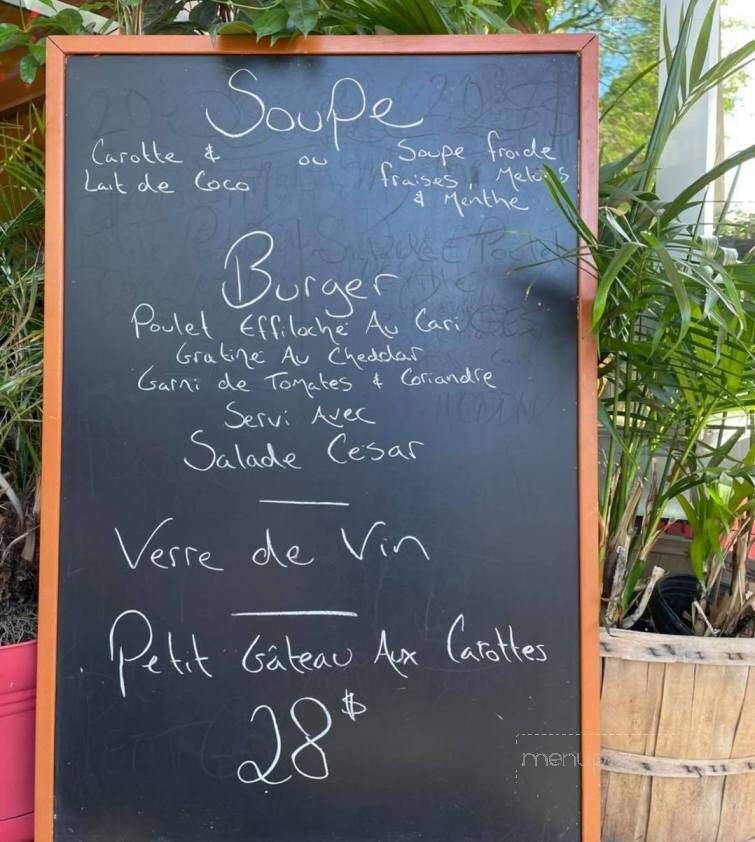 Soupe
Carotte &
Lait de Coco
ou
Soupe froide
fraises, Melons
& Menthe
Burger
Poulet Effiloché Au Cari
Gratiné Au Cheddar
Garni de Tomates & Coriandre
Servi Avec
Salade César
Verre de Vin
Petit Gâteau Aux Carottes
28$
menu